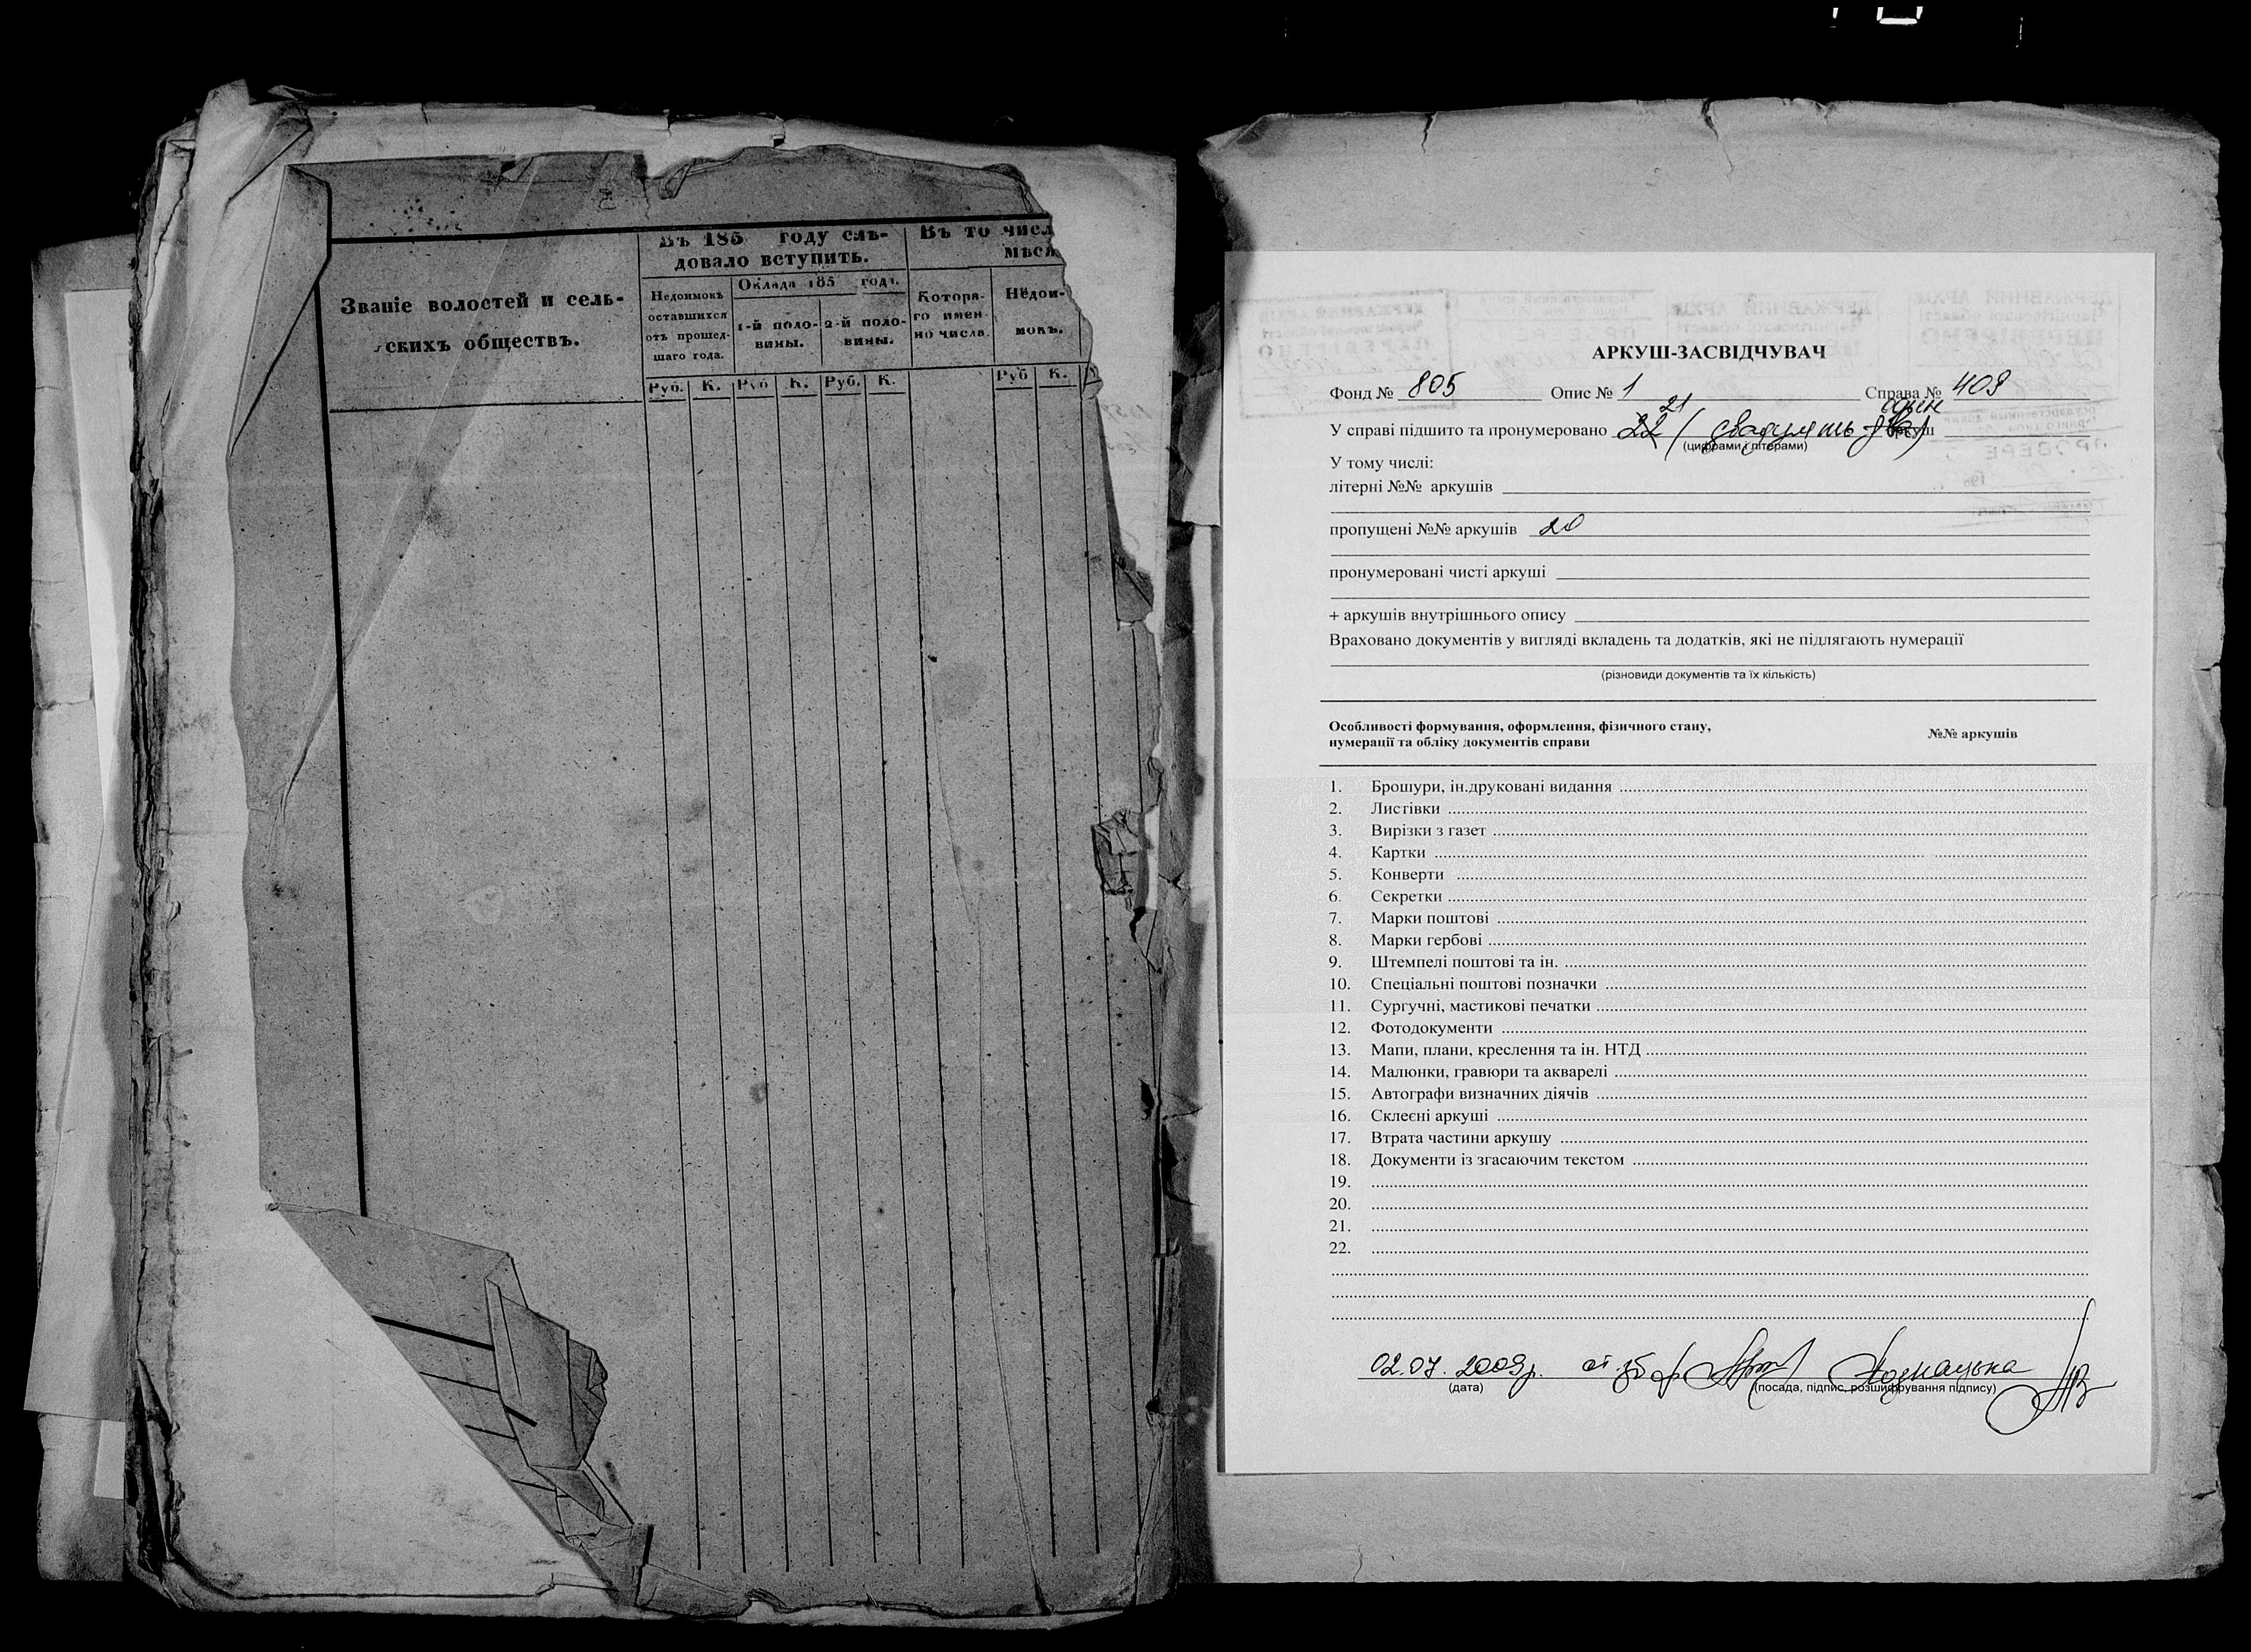 Званіе волостей и сель-
скихъ обществъ.
Въ 185 году слѣ-
довало вступить.
Недоимокъ
оставшихся
отъ прошед-
шаго года.
Оклада 185 года.
1-й поло-
вины.
2-й поло-
вины.
Въ то числ
мѣся
Котора-
го имен-
но числа.
Недои-
мокъ.
Руб. К. Руб К. Руб. К. Руб К.
АРКУШ-ЗАСВІДЧУВАЧ
Фонд № 805 Опис № 1 Справа № 409
21 один
У справі підшито та пронумеровано 22 (двадцять) аркуш
(цифрами і літерами)
У тому числі:
літерні №№ аркушів
пропущені №№ аркушів 20
пронумеровані чисті аркуші
+ аркушів внутрішнього опису
Враховано документів у вигляді вкладень та додатків, які не підлягають нумерації
(різновиди документів та їх кількість)
Особливості формування, оформлення, фізичного стану,
нумерації та обліку документів справи
№№ аркушів
1. Брошури, ін.друковані видання
2. Листівки
3. Вирізки з газет
4. Картки
5. Конверти
6. Секретки
7. Марки поштові
8. Марки гербові
9. Штемпелі поштові та ін.
10. Спеціальні поштові позначки
11. Сургучні, мастикові печатки
12. Фотодокументи
13. Мапи, плани, креслення та ін. НТД
14. Малюнки, гравюри та акварелі
15. Автографи визначних діячів
16. Склеєні аркуші
17. Втрата частини аркушу
18. Документи із згасаючим текстом
19.
20.
21.
22.
02.07.2009р.
(дата)
(посада, підпис, розшифрування підпису)